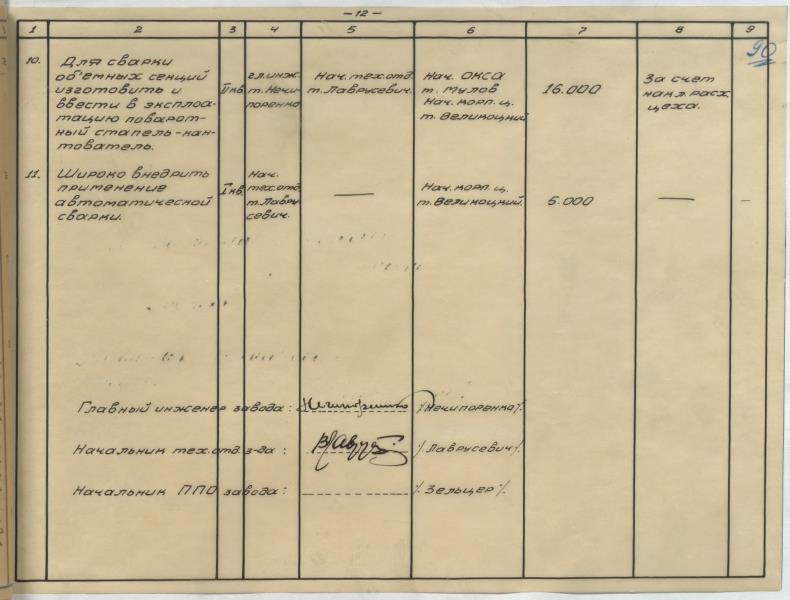 —12—
1 2 3 4 5 6 7 8 9
90
10. Для сварки
об'емных секций
изготовить и
ввести в эксплоа-
тацию поворот-
ный стапель-кан-
тователь.
II кв.
гл.инж.
т. Нечи-
поренко
Нач. тех.отд.
т. Лаврусевич.
Нач. ОКСа
т. Мулов
Нач. корп. ц.
т. Великоцкий
16.000
За счет
накл. расх.
цеха.
11. Широко внедрить
применение
автоматической
сварки.
I кв.
Нач.
тех.отд.
т. Лавру
севич.
—
Нач. корп. ц.
т. Великоцкий.
5.000
—
–
Главный инженер завода: Нечипоренко /Нечипоренко/.
Начальник тех.отд. з-да: /Лаврусевич/.
Начальник ППО завода: /Зельцер/.